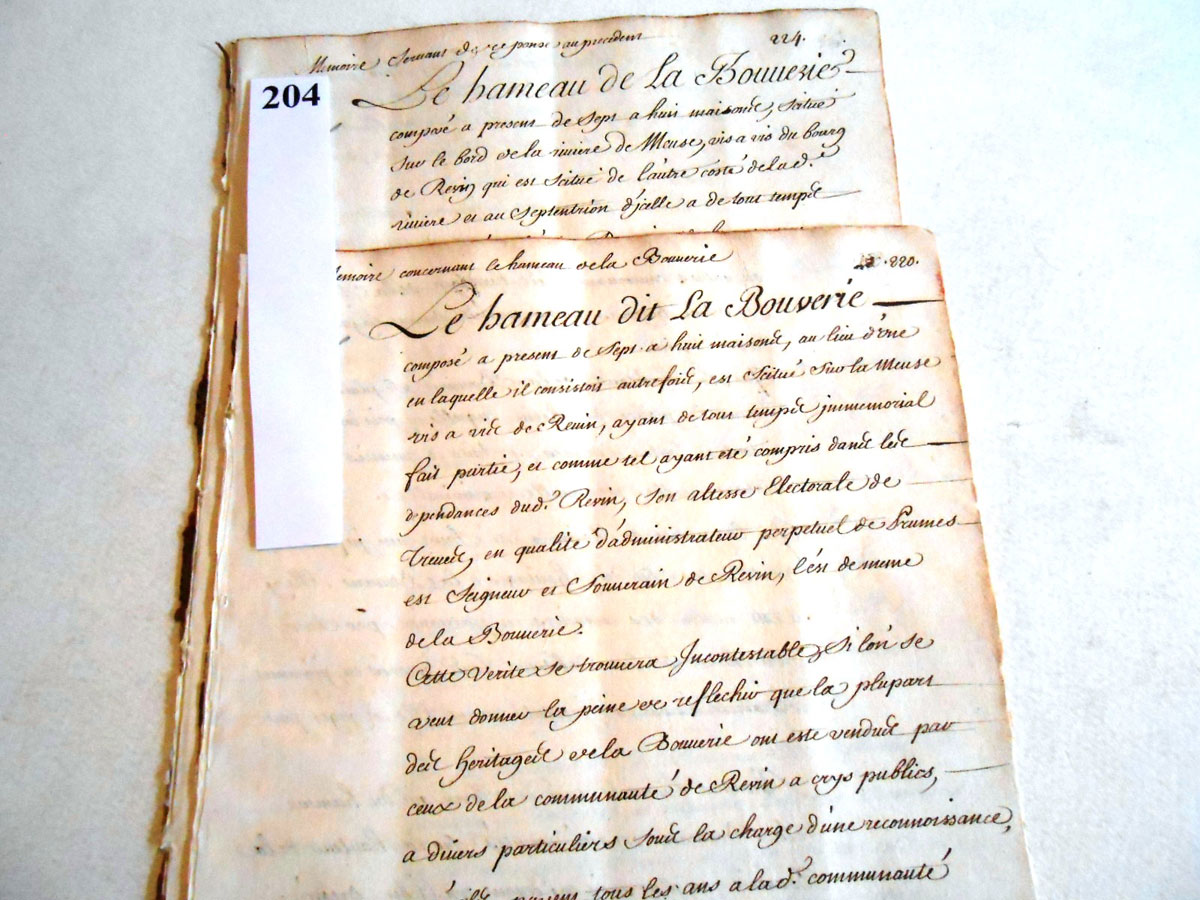 204
Memoire Servant de reponse au precedent 224.
Le hameau de La Bouverie
composé a present de Sept a huit maisons, Scitué
sur le bord de la riviere de Meuse, vis a vis du bourg
de Revin qui est Scitué de l'autre costé de la d.e
riviere et au Septentrion d'jcelle a de tout temps
Memoire concernant le hameau de la Bouverie .220.
Le hameau dit La Bouverie
composé a present de Sept a huit maisons, au lieu d'une
en laquelle il consistoit autrefois, est Scitué Sur la Meuse
vis a vis de Revin, ayant de tous temps jmmemorial
fait partie, et comme tel ayant été compris dans les
dependances dud.t Revin, Son altesse Electorale de
Treves, en qualité d'administrateur perpetuel de Prumes
est Seigneur et Souverain de Revin, l'est de meme
de la Bouverie.
Cette verité se trouvera Jncontestable, Si lon se
veut donner la peine de reflechir que la plupart
des heritages de la Bouverie ont esté vendus par
ceux de la communauté de Revin a crys publics,
a divers particuliers sous la charge d'une reconnoissance,
tous les ans a la d.e communauté